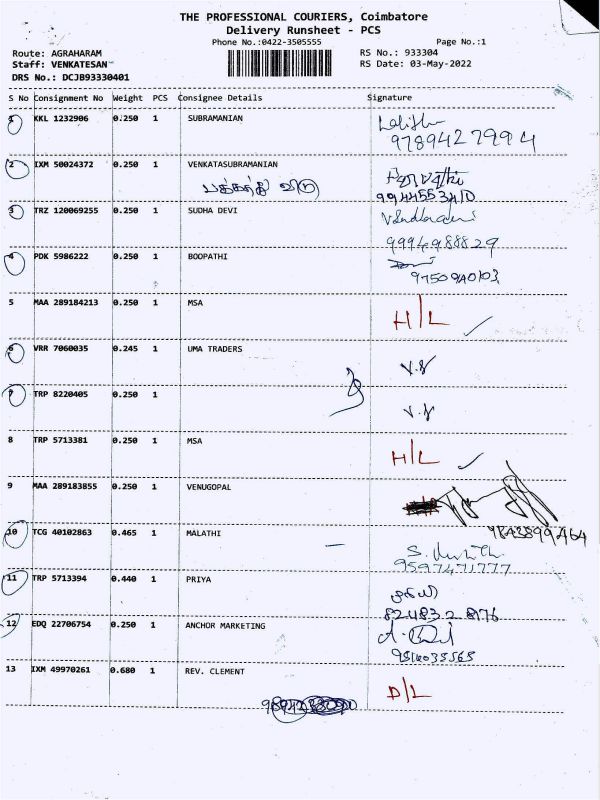 THE PROFESSIONAL COURIERS, Coimbatore
Delivery Runsheet - PCS
Phone No.:0422-3505555 Page No.:1
Route: AGRAHARAM RS No.: 933304
Staff: VENKATESAN RS Date: 03-May-2022
DRS No.: DCJB93330401
S No Consignment No Weight PCS Consignee Details Signature
1 KKL 1232906 0.250 1 SUBRAMANIAN
9789427994
2 IXM 50024372 0.250 1 VENKATASUBRAMANIAN
9944553410
3 TRZ 120069255 0.250 1 SUDHA DEVI
9994988829
4 PDK 5986222 0.250 1 BOOPATHI
5 MAA 289184213 0.250 1 MSA H/L
6 VRR 7060035 0.245 1 UMA TRADERS V.V
7 TRP 8220405 0.250 1 V.V
8 TRP 5713381 0.250 1 MSA H/L
9 MAA 289183855 0.250 1 VENUGOPAL
10 TCG 40102863 0.465 1 MALATHI
9597471777
11 TRP 5713394 0.440 1 PRIYA
12 EDQ 22706754 0.250 1 ANCHOR MARKETING
13 IXM 49970261 0.680 1 REV. CLEMENT D/L